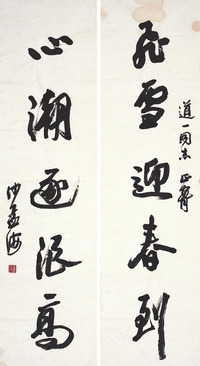 道一同志正腕
飛雪迎春到
心潮逐浪高
沙孟海